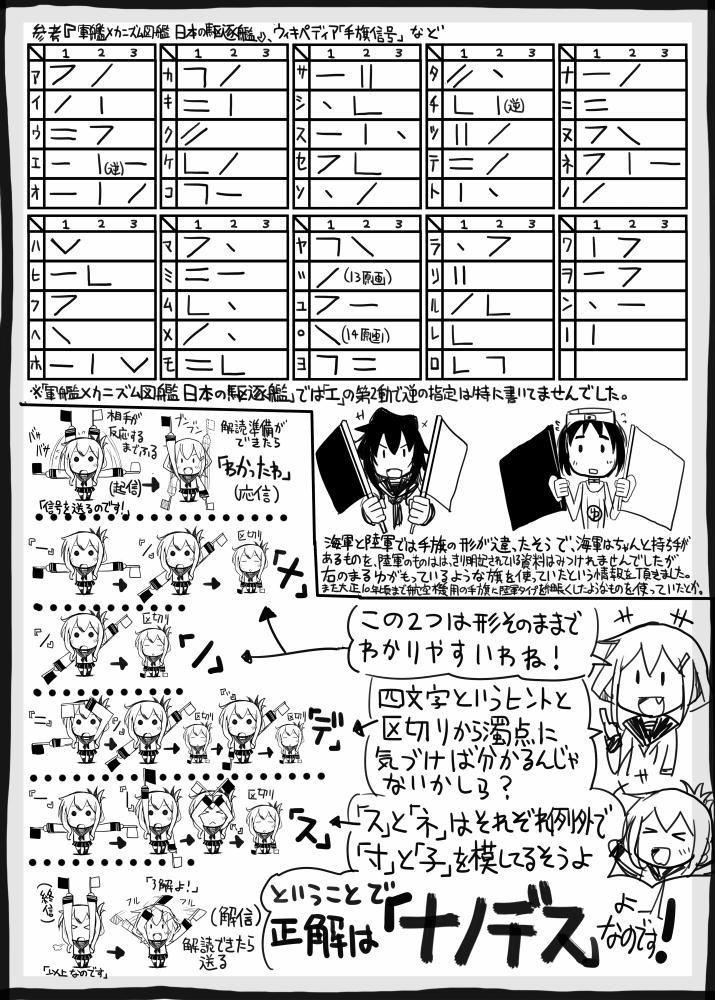 参考『軍艦メカニズム図鑑 日本の駆逐艦』、ウィキペディア「手旗信号」など
1 2 3
ア
イ
ウ
エ (逆)
オ
1 2 3
カ
キ
ク
ケ
コ
1 2 3
サ
シ
ス
セ
ソ
1 2 3
タ
チ (逆)
ツ
テ
ト
1 2 3
ナ
ニ
ヌ
ネ
ノ
1 2 3
ハ
ヒ
フ
ヘ
ホ
1 2 3
マ
ミ
ム
メ
モ
1 2 3
ヤ
(13原画)
ユ
(14原画)
ヨ
1 2 3
ラ
リ
ル
レ
ロ
1 2 3
ワ
ヲ
ン
ー
※「軍艦メカニズム図鑑 日本の駆逐艦」では「エ」の第2動で逆の指定は特に書いてませんでした。
相手が
反応する
までふる
バサ
バサ
(起信)
「信号を送るのです!」
解読準備が
できたら
「わかったわ」
(応信)
海軍と陸軍では手旗の形が違ったそうで、海軍はちゃんと持ち手が
あるものを、陸軍のものははっきり明記されている資料はみつけれませんでしたが
右のまるゆがもっているような旗を使っていたという情報を頂きました。
また大正10年頃まで航空機用の手旗に陸軍タイプを紺眼くしたようなものを使っていたとか。
区切り
「ナ」
区切り
「ノ」
この2つは形そのままで
わかりやすいわね!
区切り
区切り
「デ」
四文字というヒントと
区切りから濁点に
気づけば分かるんじゃ
ないかしら?
区切り
「ス」
「ス」と「ネ」はそれぞれ例外で
「寸」と「子」を模してるそうよ
(終信)
「以上なのです」
「了解よ!」
フル
フル
(解信)
解読できたら
送る
ということで
正解は「ナノデス」
よー
なのです!